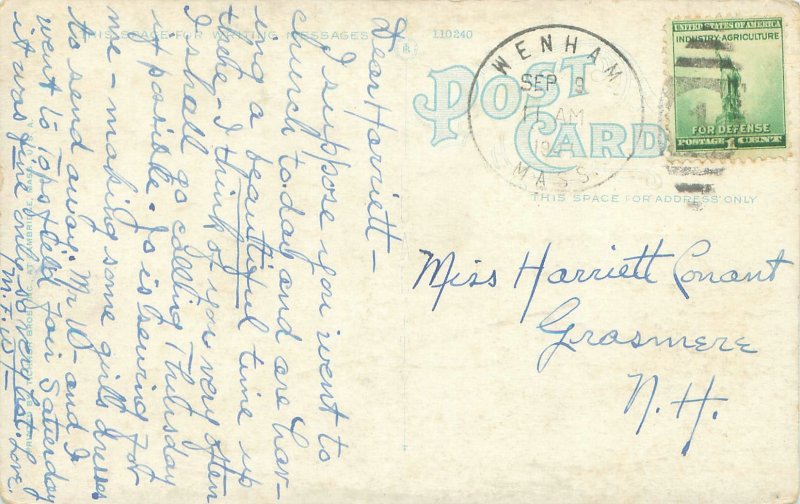 THIS SPACE FOR WRITING MESSAGES
110240
Dear Harriett –
I suppose you went to
church today and are hav-
ing a beautiful time up
there – I think of you very often
I shall go calling Thursday
if possible. Jo is sewing for
me – making some girls dresses
to send away. Mr W – and I
went to Topsfield Fair Saturday
it was fine only so very hot. Love.
M. F. W –
POST
CARD
WENHAM,
SEP 9
11 AM
194
MASS.
UNITED STATES OF AMERICA
INDUSTRY-AGRICULTURE
FOR DEFENSE
POSTAGE 1 CENT
THIS SPACE FOR ADDRESS ONLY
Miss Harriett Conant
Grasmere
N. H.